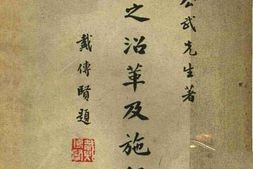 公武先生著
之沿革及施
戴傳賢題